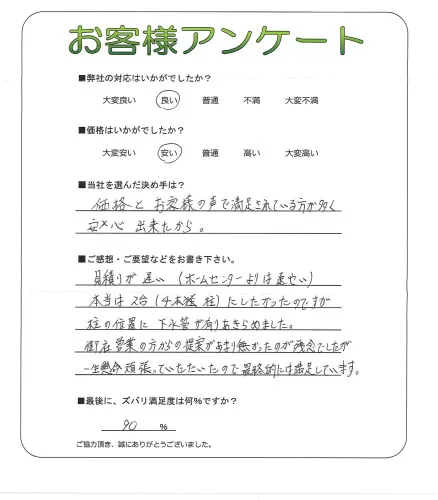 お客様アンケート
■弊社の対応はいかがでしたか?
大変良い 良い 普通 不満 大変不満
■価格はいかがでしたか?
大変安い 安い 普通 高い 大変高い
■当社を選んだ決め手は?
価格と お客様の声で満足されている方が多く
安心 出来たから。
■ご感想・ご要望などをお書き下さい。
見積りが遅い (ホームセンターよりは速い)
本当は 2台 (4本 柱) にしたかったのですが
柱の位置に 下水管が有りあきらめました。
営業の方からの提案があまり無かったのが残念でしたが
一生懸命頑張っていただいたので最終的には満足しています。
■最後に、ズバリ満足度は何%ですか?
90 %
ご協力頂き、誠にありがとうございました。